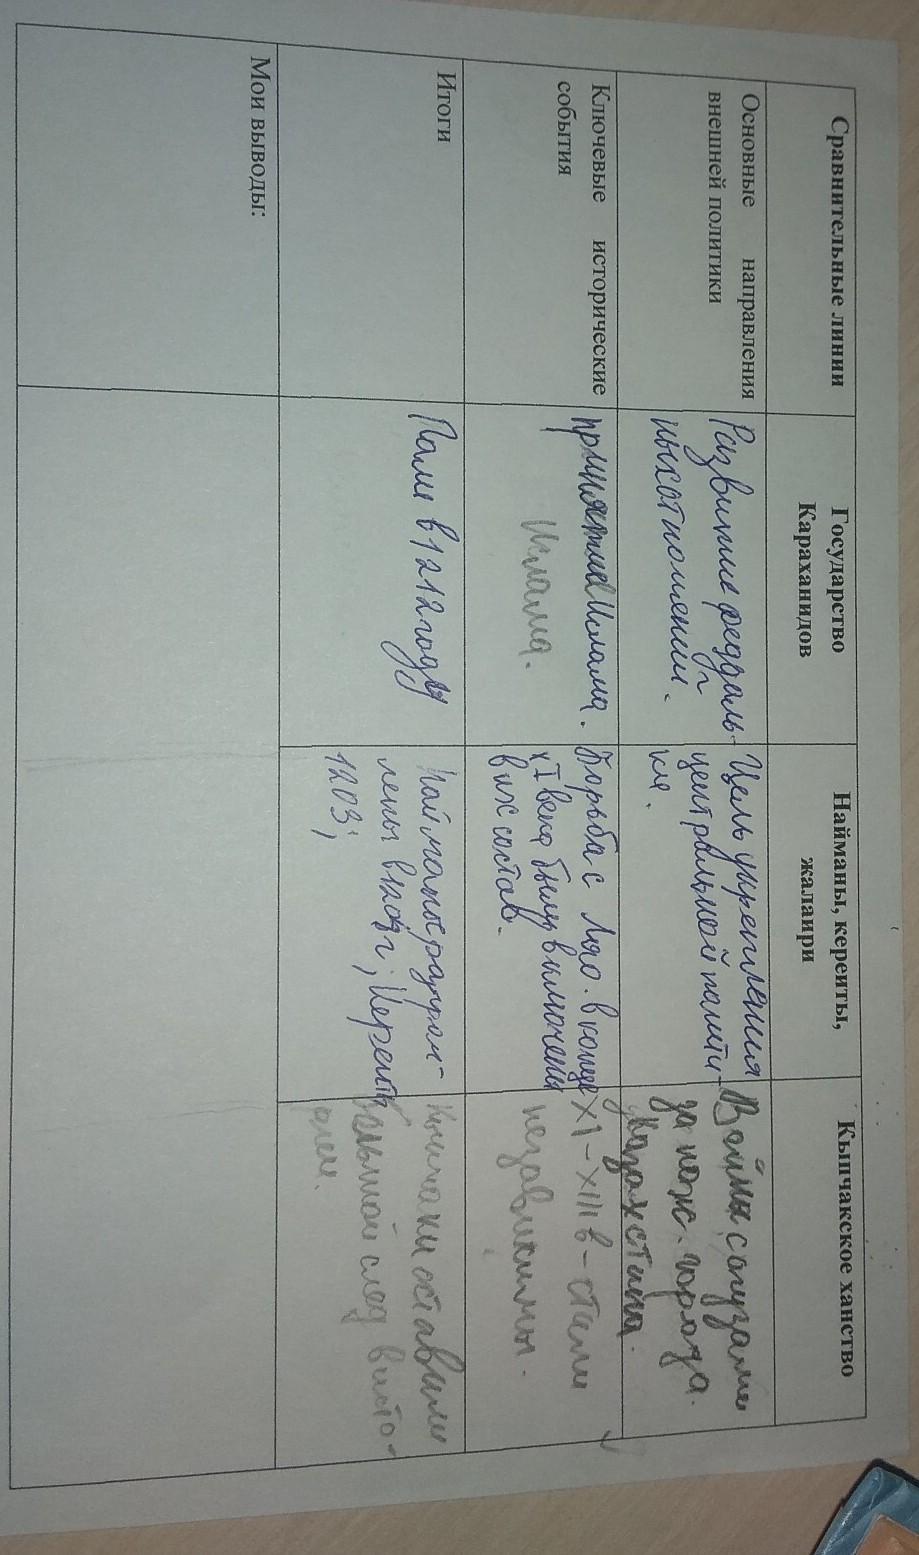 Сравнительные линии
Государство
Караханидов
Найманы, кереиты,
жалаири
Кыпчакское ханство
Основные направления
внешней политики
Развитие феодаль-
ных отношении.
Цель укрепления
центральной полити-
ки.
Войны с огузами
за юж. города.
Казахстана.
Ключевые исторические
события
принятие Ислама.
Ислама.
Борьба с Ляо. в конце
XI века были включены
в их состав.
XI-XIII в - стали
независимы.
Итоги
Пали в 1212 году
Найманы
лены в г; Кереиты
1203;
Кипчаки оставили
большой след в исто-
рии.
Мои выводы: